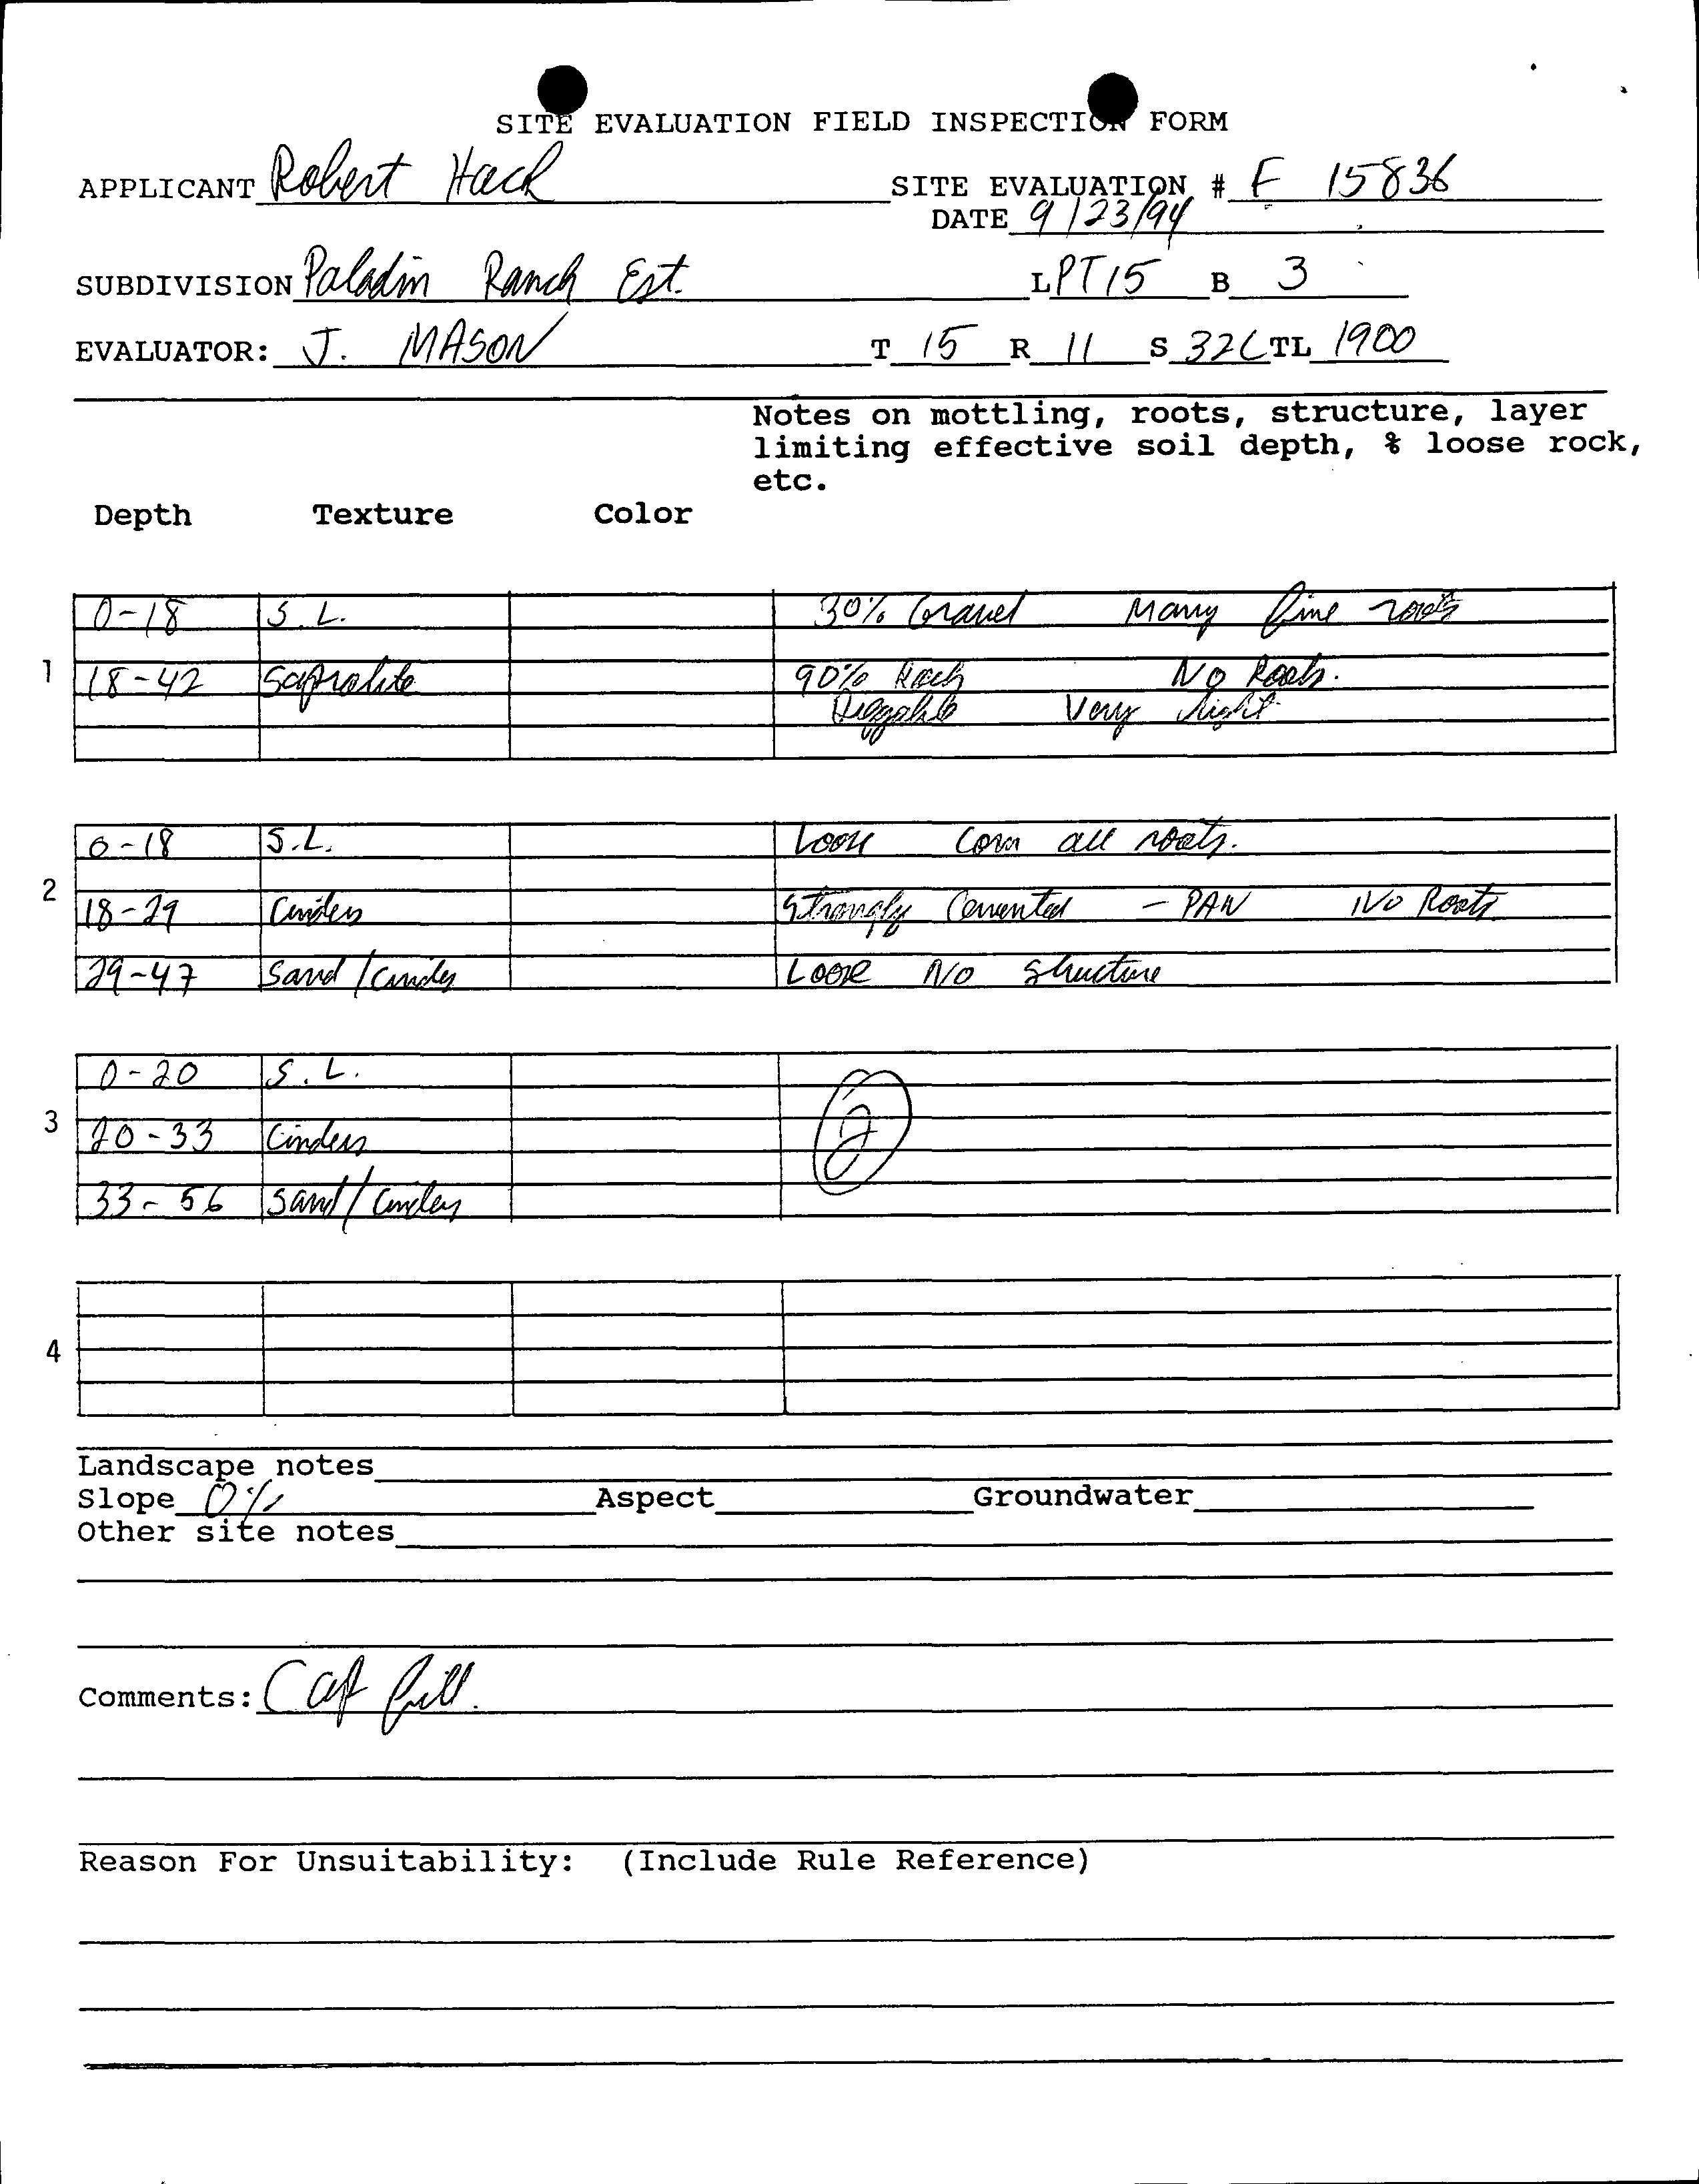 SITE EVALUATION FIELD INSPECTION FORM
APPLICANT Robert Hack SITE EVALUATION # E 15836
DATE 9/23/94
SUBDIVISION Paladin Ranch Est. L PT15 B 3
EVALUATOR: J. MASON T 15 R 11 S 32C TL 1900
Notes on mottling, roots, structure, layer
limiting effective soil depth, % loose rock,
etc.
Depth Texture Color
0-18 S.L. 30% Gravel Many fine roots
1 18-42 Saprolite 90% Rock No Roots.
Diggable Very
0-18 S.L. Loose all roots.
2 18-29 Cinders Strongly Cemented - PAN No Roots
29-47 Sand/Cinders Loose No Structure
0-20 S.L.
3 20-33 Cinders 2
33-56 Sand/Cinders
4
Landscape notes
Slope 0% Aspect Groundwater
Other site notes
Comments: Cap fill.
Reason For Unsuitability: (Include Rule Reference)